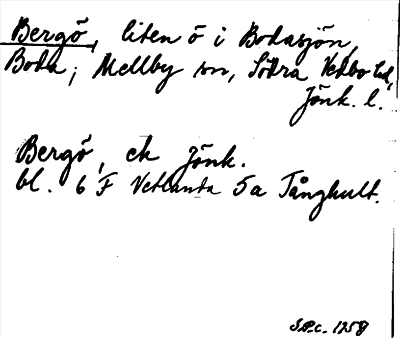 Bergö, liten ö i Bodasjön,
Boda, Mellby sn, Södra Vedbo hd,
Jönk. l.
Bergö, ek Jönk.
bl. 6 F Vetlanda 5a Tånghult.
S.P.C. 1258